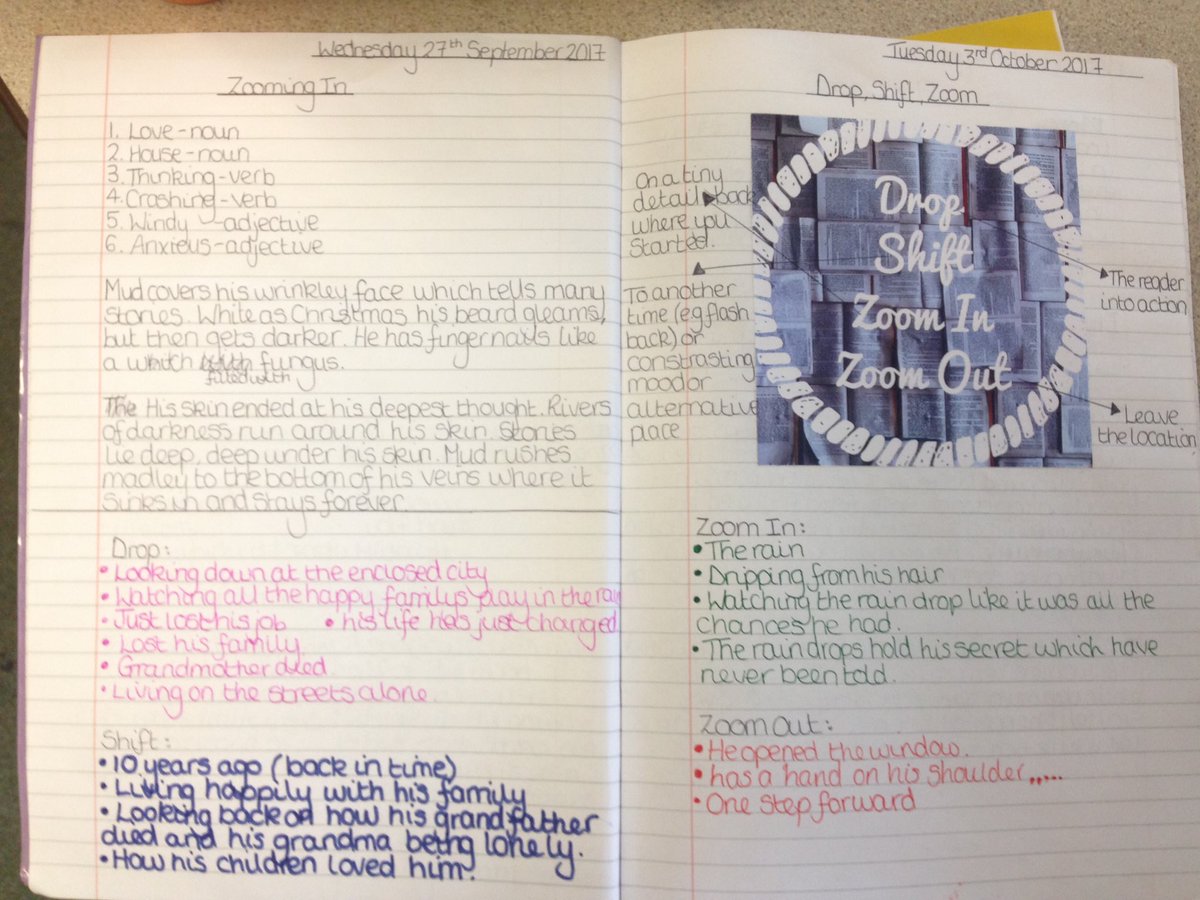 Wednesday 27th September 2017
Zooming In
1. Love - noun
2. House - noun
3. Thinking - verb
4. Crashing - verb
5. Windy - adjective
6. Anxieus - adjective
Mud covers his wrinkley face which tells many
stories. White as Christmas his beard gleams,
but then gets darker. He has fingernails like
a which fungus.
filed with
The His skin ended at his deepest thought. Rivers
of darkness run around his skin. Stories
lie deep, deep under his skin. Mud rushes
madley to the bottom of his veins where it
sinks in and stays forever.
Drop:
• Looking down at the enclosed city
• Watching all the happy familys play in the rain
• Just lost his job • his life has just changed
• Lost his family.
• Grandmother died.
• Living on the streets alone.
Shift:
• 10 years ago (back in time)
• Living happily with his family
• Looking back on how his grandfather
died and his grandma being lonely.
• How his children loved him.
Tuesday 3rd October 2017
Drop, Shift, Zoom
On a tiny
detail back
where you
started.
To another
time (eg flash
back) or
constrasting
mood or
alternative
place
Drop
Shift
Zoom In
Zoom Out
The reader
into action
Leave
the location
Zoom In:
• The rain
• Dripping from his hair
• Watching the rain drop like it was all the
chances he had.
• The rain drops hold his secret which have
never been told.
Zoom Out:
• He opened the window.
• has a hand on his shoulder,,....
• One step forward